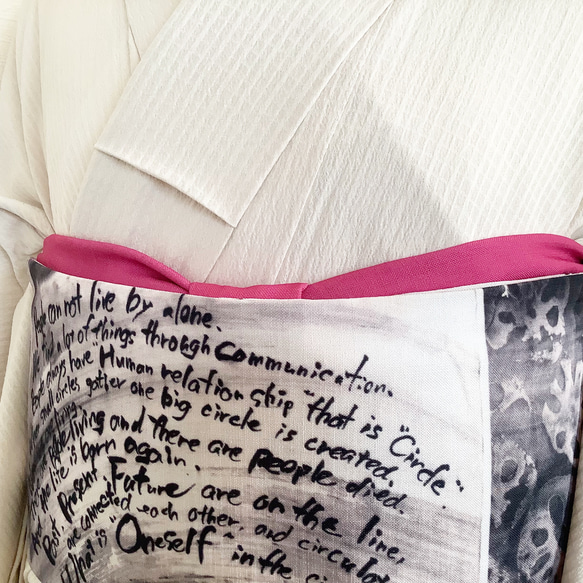 People can not live by alone.
find a lot of things through communication.
People always have Human relation ship "that is "Circle".
small circles gather one big circle is created.
people living and there are people died.
the life is born again.
Past, Present, Future are on the line,
are connected each other, and circular
What is "Oneself" in the